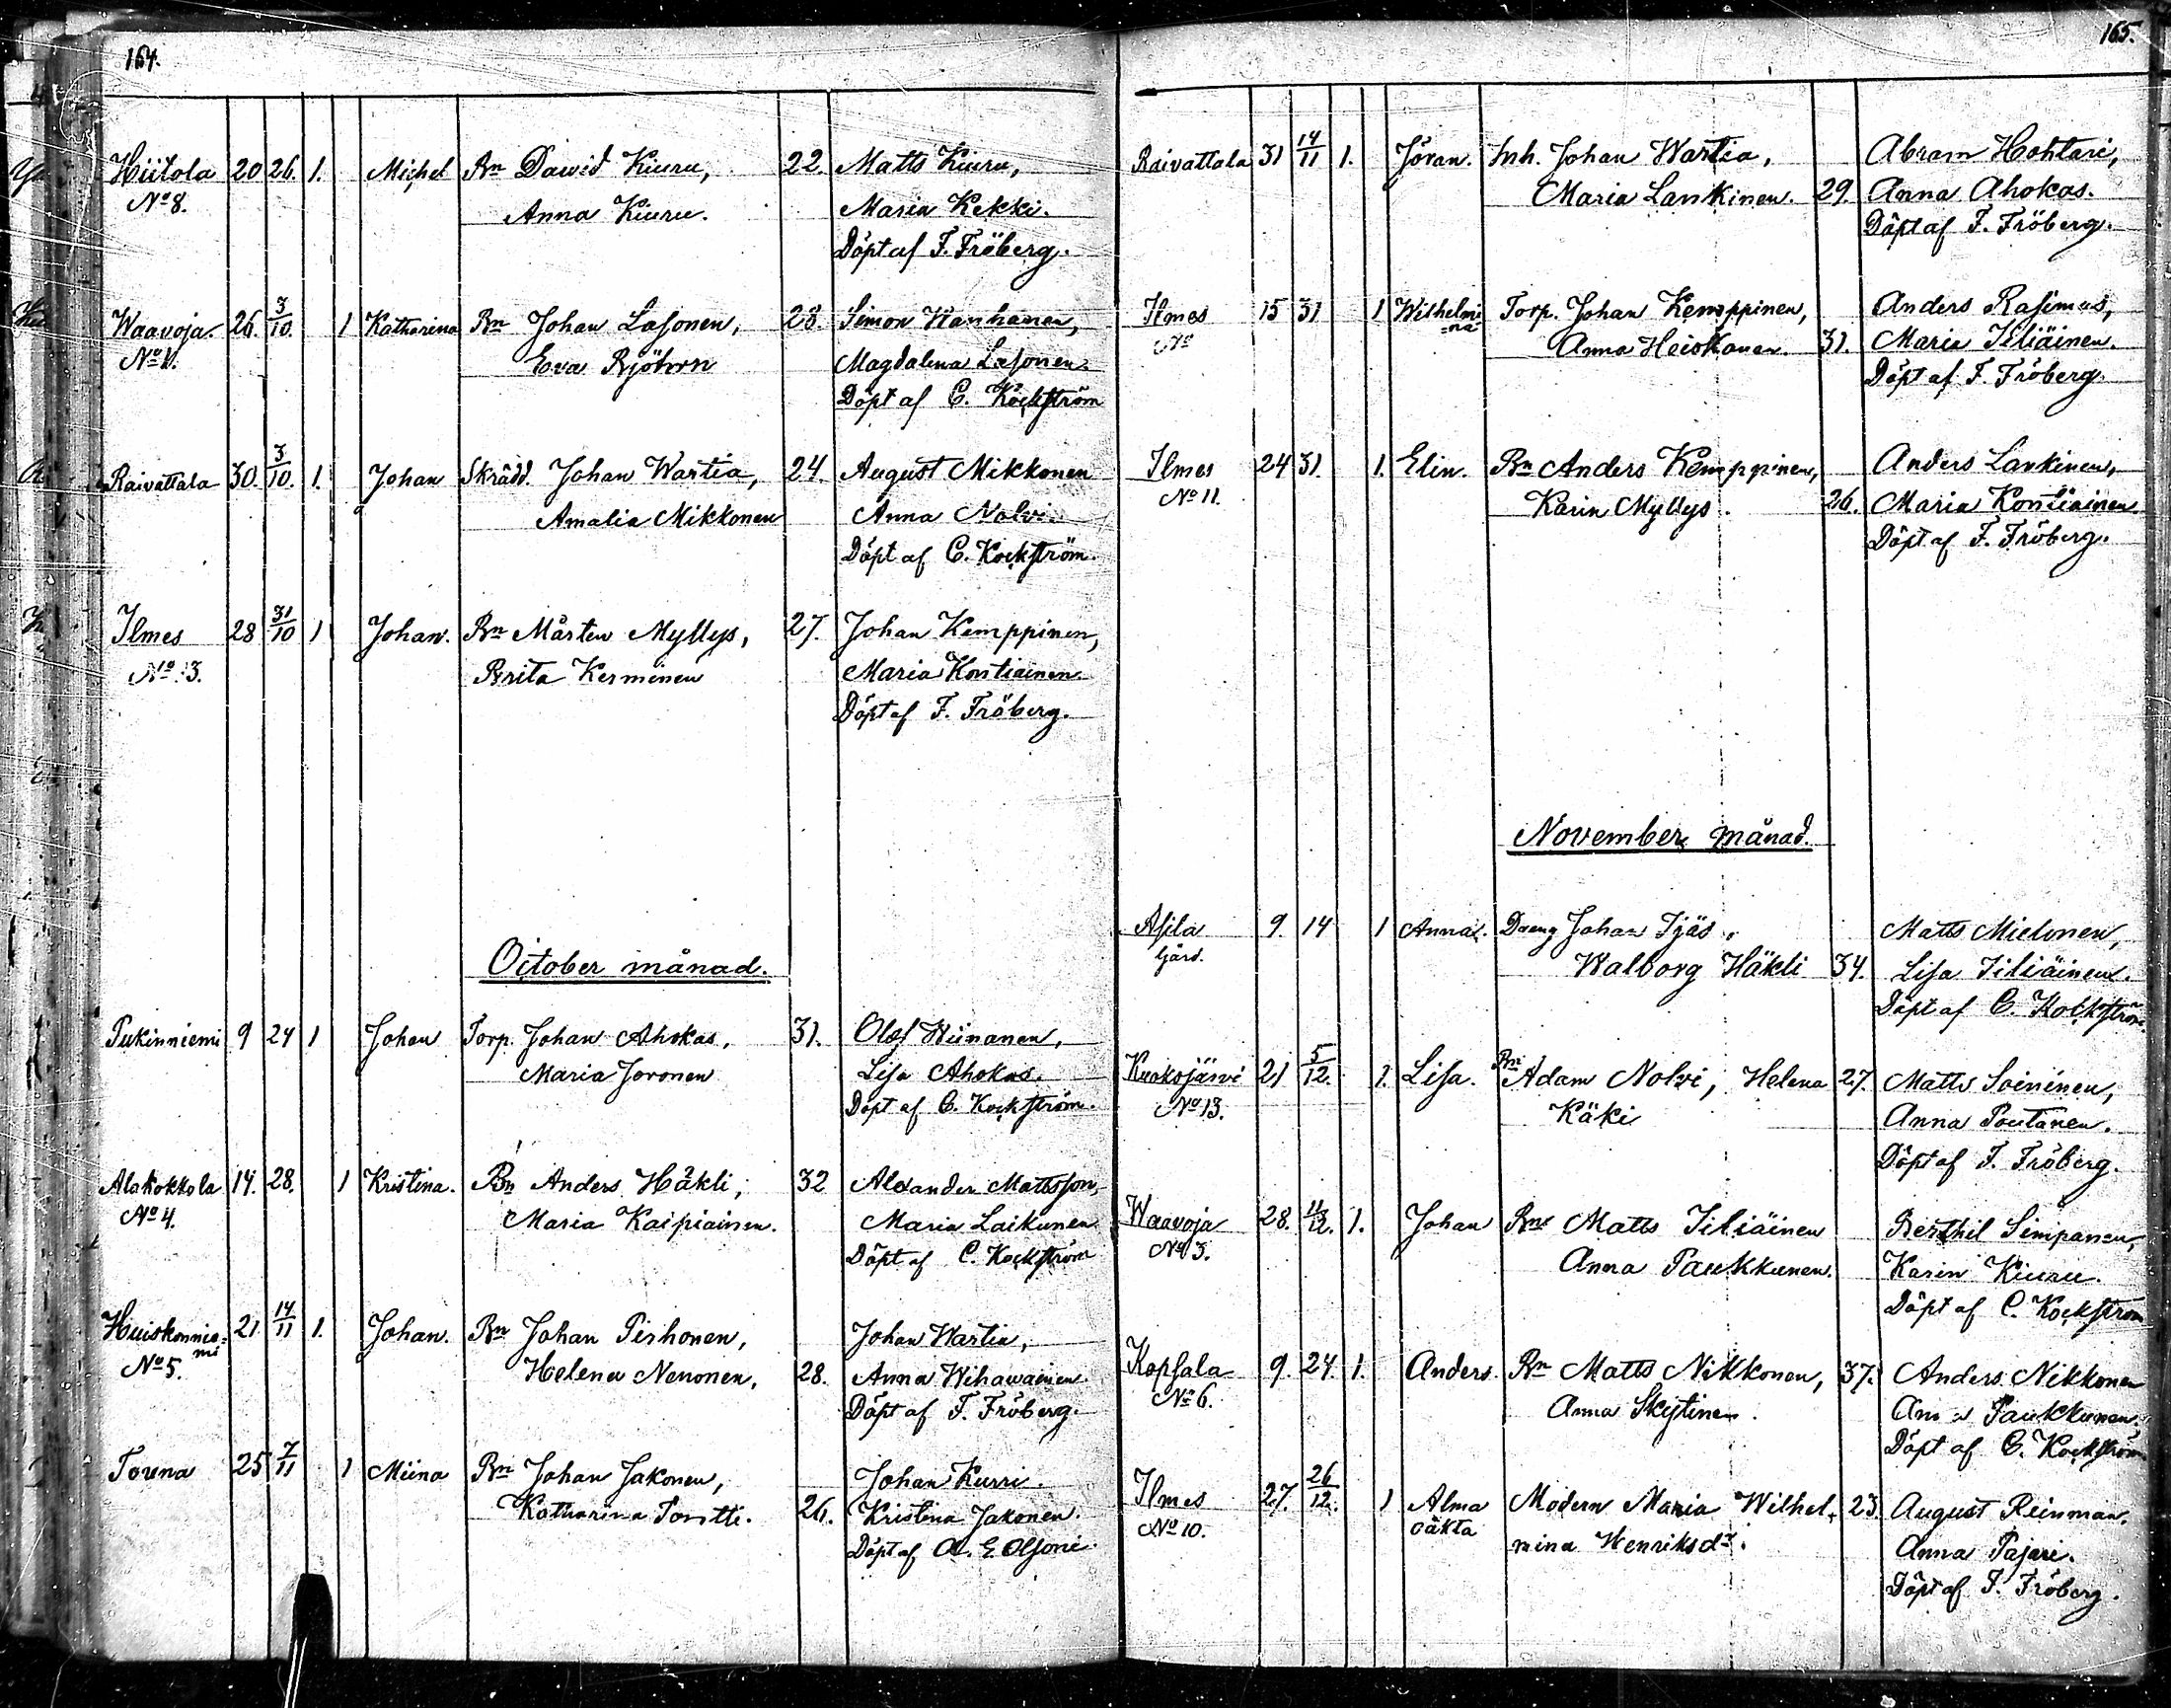 164.
Hiitola 20 26. 1. Michel Bn Dawid Kiuru, 22. Matts Kiuru,
No 8. Anna Kiuru. Maria Kekki.
Döpt af F. Fröberg.
Waavoja. 26. 3/10. 1 Katharina Bn Johan Lasonen, 28. Simon Wanhanen,
No 1. Eva Björn Magdalena Lasonen.
Döpt af C. Kockström
Raivattala 30. 3/10. 1. Johan Skrädd. Johan Wartia, 24. August Mikkonen
Amalia Mikkonen Anna
Döpt af C. Kockström.
Ilmes 28 31/10 1 Johan. Bn Mårten Myllys, 27. Johan Kemppinen,
No 13. Brita Kerminen Maria Kontiainen.
Döpt af F. Fröberg.
October månad.
Pukinniemi 9 24 1 Johan Torp. Johan Ahokas, 31. Olof Wiinanen,
Maria Joronen Lisa Ahokas.
Döpt af C. Kockström.
Alakokkola 14. 28. 1 Kristina. Bn Anders Häkli, 32 Alexander Mattsson,
No 4. Maria Kaipiainen. Maria Laikunen
Döpt af C. Kockström
Huiskonnie= 21 14/11 1. Johan. Bn Johan Pirhonen, Johan Wartia,
mi
No 5. Helena Nenonen, 28. Anna Wihawainen.
Döpt af F. Fröberg.
Touna 25 7/11 1 Miina Bn Johan Jakonen, Johan Kurri.
Katharina Tontti. 26. Kristina Jakonen.
Döpt af A. E Olsoni.
165.
Raivattala 31 14/11 1. Jöran. Inh. Johan Wartia, Abram Hohtari,
Maria Lankinen. 29. Anna Ahokas.
Döpt af F. Fröberg.
Ilmes 15 31 1 Wilhelmi Torp. Johan Kemppinen, Anders Rasimus,
=na
No Anna Heiskanen. 31. Maria Iiliäinen.
Döpt af F. Fröberg.
Ilmes 24 31. 1. Elin. Bn Anders Kemppinen, Anders Lankinen,
No 11. Karin Myllys. 26. Maria Kontiainen.
Döpt af F. Fröberg.
November månad.
Asila 9. 14 1 Anna. Dreng Johan Tjäs, Matts Mielonen,
Gård. Walborg Häkli 34. Lisa Iiliäinen.
Döpt af C. Kockström.
Kuoksjärvi 21 5/12. 1. Lisa. Bn Adam Nolvi, Helena 27. Matts Soininen,
No 13. Käki Anna Poutanen.
Döpt af F. Fröberg.
Waavoja 28. 1. Johan Bn Matts Iiliäinen Berthil Simpanen,
No 3. Anna Paukkunen. Karin Kiuru.
Döpt af C. Kockström
Kopsala 9. 24. 1. Anders. Bn Matts Nikkonen, 37. Anders Nikkonen
No 6. Anna Skytinen. Anna Paukkunen.
Döpt af C. Kockström
Ilmes 27. 26/12. 1 Alma Modern Maria Wilhel- 23. August Reinman.
No 10. oäkta mina Henriksdr. Anna Pajari.
Döpt af F. Fröberg.